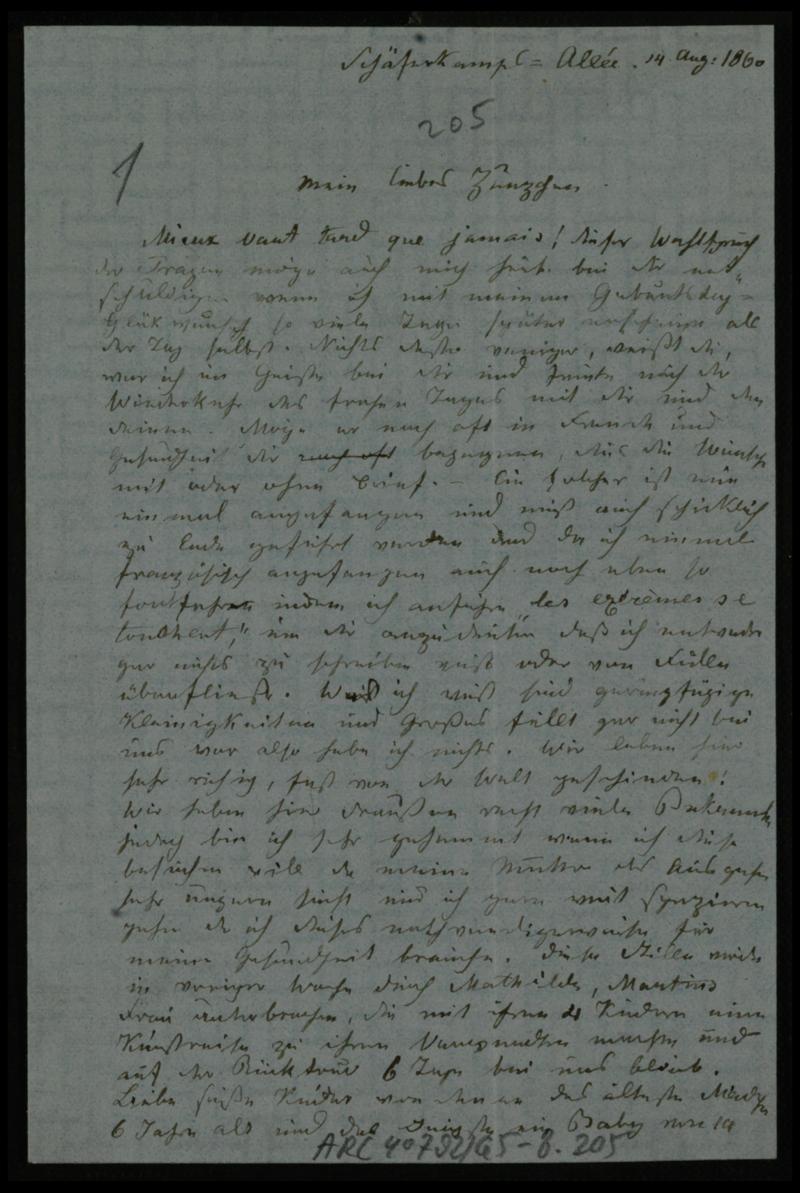 Schäferkamps=Allée. 14 Aug: 1860
205
1
Mein liebes Zunzchen
Mieux vaut tard que jamais! dieser Wahlspruch
der Trägen möge auch mich heute bei dir ent-
schuldigen wenn ich mit meinem Geburtstag=
Glükwunsch so viele Tage später erscheine als
der Tag selbst. Nichts desto weniger, weißt du,
war ich im Geiste bei dir und feierte auch die
Wiederkehr des frohen Tages mit dir und den
deinen. Möge er noch oft in Freude und
Gesundheit dir noch oft begegnen, dies die Wünsche
mit oder ohne Brief. – Ein solcher ist nun
einmal angefangen und muß auch schicklich
zu Ende geführt werden und da ich einmal
französisch angefangen auch noch eben so
fortfahren indem ich anführe "les extrèmes se
touchent," um dir anzudeuten daß ich entweder
gar nichts zu schreiben weiß oder von Fülle
überfließe. Was ich weiß sind geringfügige
Kleinigkeiten und Großes fällt gar nicht bei
uns vor also habe ich nichts. Wir leben hier
sehr ruhig, fast von der Welt geschieden!
Wir haben hier draußen recht viele Bekannte
jedoch bin ich sehr gehemmt wenn ich diese
besuchen will da meine Mutter das Ausgehen
sehr ungern sieht und ich gern weit spazieren
gehe da ich dieses nothwendigerweise für
meine Gesundheit brauche. Diese Stille wurde
in voriger Woche durch Mathilde, Martins
Frau unterbrochen, die mit ihren Kindern eine
Kunstreise zu ihren Verwandten machte und
auf der Rücktour 6 Tage bei uns blieb.
Liebe süße Kinder von denen das älteste Mädchen
6 Jahre alt und das Jüngste ein Baby von 14
ARC 4o 792/G5-8.205